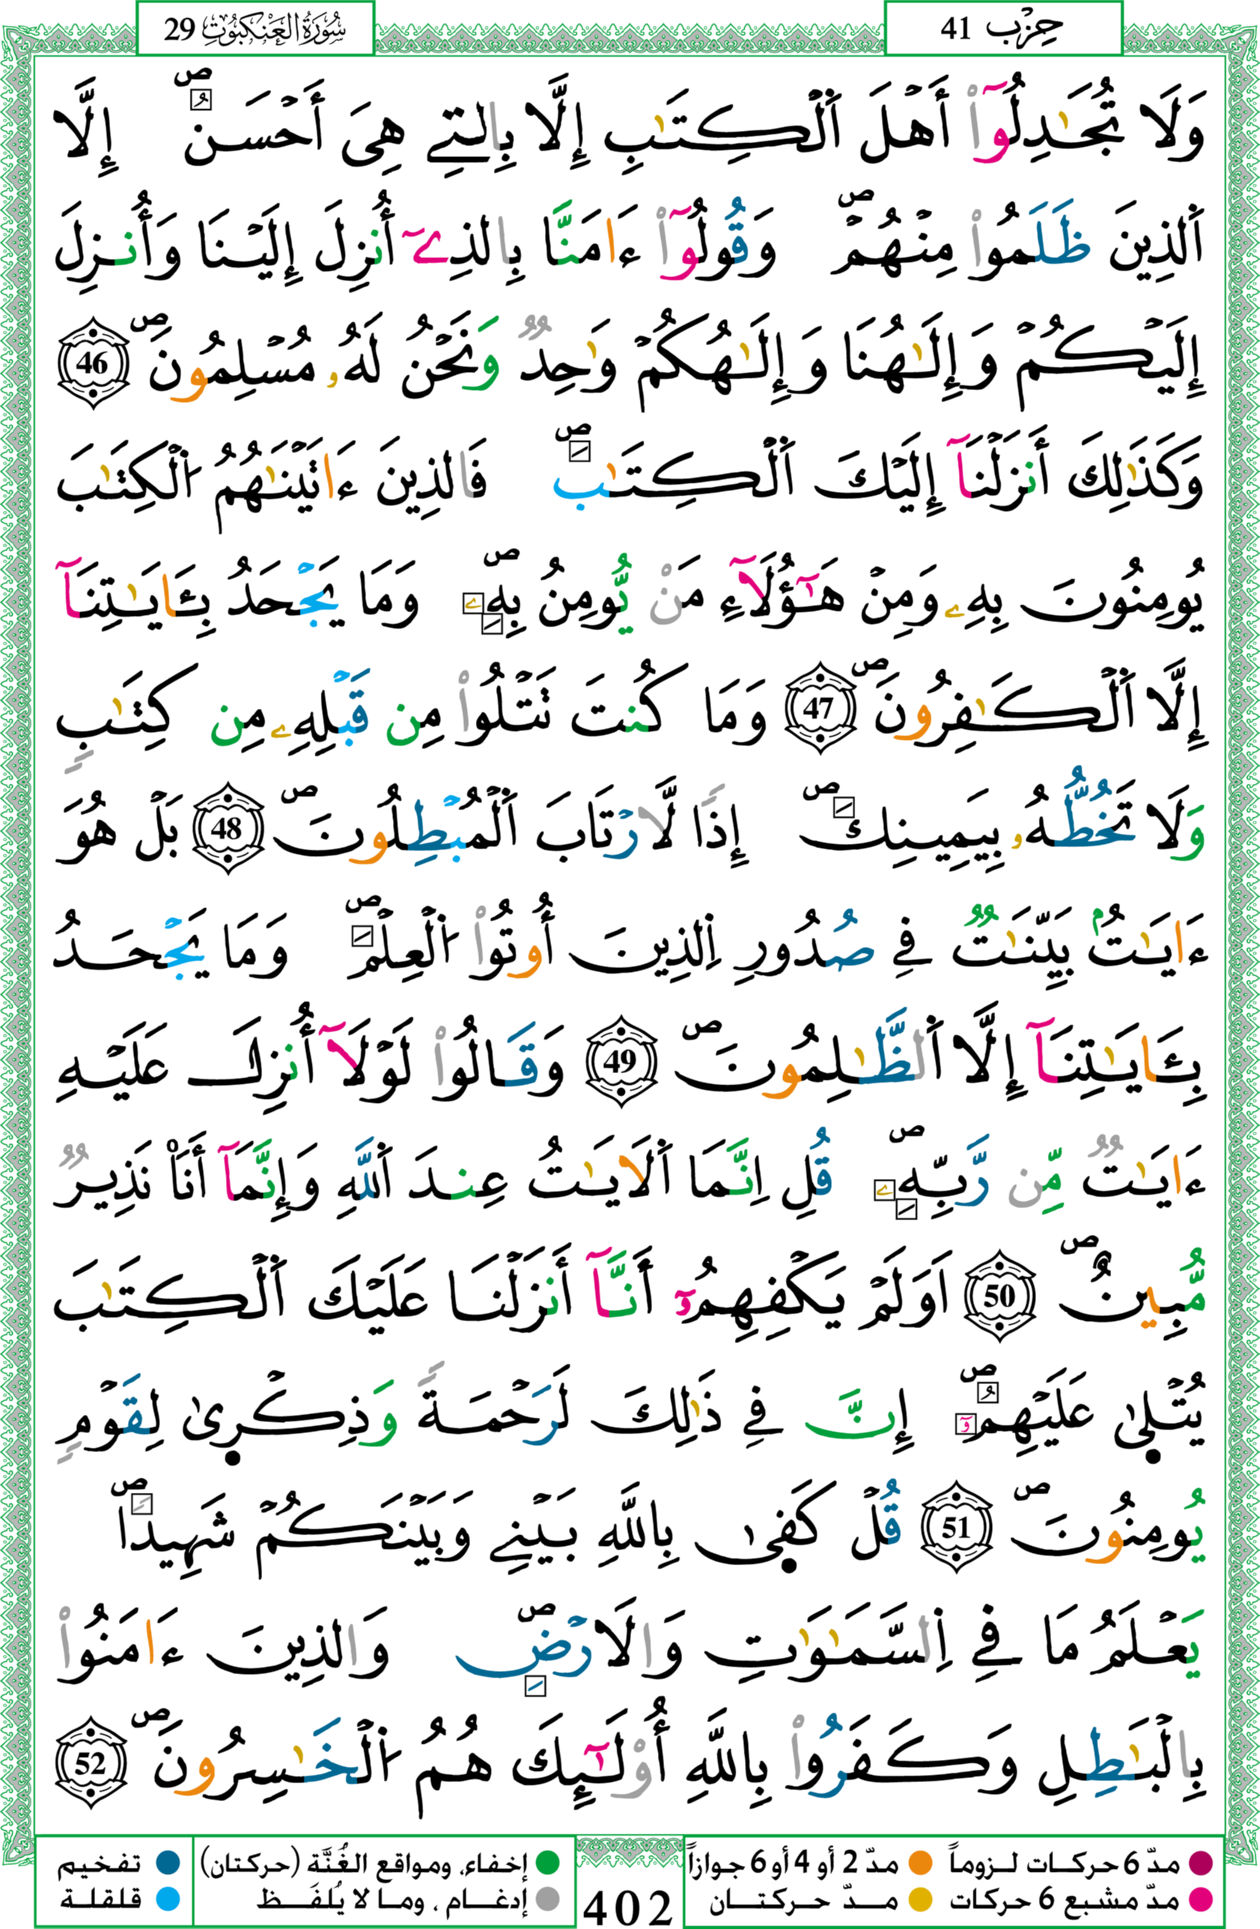 حِزْب 41
سُورَةُ الْعَنكَبُوتِ 29
وَلَا تُجَٰدِلُوٓاْ أَهْلَ اَ۬لْكِتَٰبِ إِلَّا بِالتِے هِيَ أَحْسَنُۖ إِلَّا
اَ۬لذِينَ ظَلَمُواْ مِنْهُمْۖ وَقُولُوٓاْ ءَامَنَّا بِالذِےٓ أُنزِلَ إِلَيْنَا وَأُنزِلَ
إِلَيْكُمْ وَإِلَٰهُنَا وَإِلَٰهُكُمْ وَٰحِدٞ وَنَحْنُ لَهُۥ مُسْلِمُونَۖ 46
وَكَذَٰلِكَ أَنزَلْنَآ إِلَيْكَ اَ۬لْكِتَٰبَۖ فَالذِينَ ءَاتَيْنَٰهُمُ اُ۬لْكِتَٰبَ
يُومِنُونَ بِهِۦ وَمِنْ هَٰٓؤُلَآءِ مَنْ يُّومِنُ بِهِۦۖ وَمَا يَجْحَدُ بِـَٔايَٰتِنَآ
إِلَّا اَ۬لْكَٰفِرُونَۖ 47 وَمَا كُنتَ تَتْلُواْ مِن قَبْلِهِۦ مِن كِتَٰبٖ
وَلَا تَخُطُّهُۥ بِيَمِينِكَۖ إِذاٗ لَّارْتَابَ اَ۬لْمُبْطِلُونَۖ 48 بَلْ هُوَ
ءَايَٰتُۢ بَيِّنَٰتٞ فِے صُدُورِ اِ۬لذِينَ أُوتُواْ اُ۬لْعِلْمَۖ وَمَا يَجْحَدُ
بِـَٔايَٰتِنَآ إِلَّا اَ۬لظَّٰلِمُونَۖ 49 وَقَالُواْ لَوْلَآ أُنزِلَ عَلَيْهِ
ءَايَٰتٞ مِّن رَّبِّهِۦۖ قُلِ اِنَّمَا اَ۬لَايَٰتُ عِندَ اَ۬للَّهِ وَإِنَّمَآ أَنَا۠ نَذِيرٞ
مُّبِينٌۖ 50 اَوَلَمْ يَكْفِهِمُۥٓ أَنَّآ أَنزَلْنَا عَلَيْكَ اَ۬لْكِتَٰبَ
يُتْل۪يٰ عَلَيْهِمُۥٓۖ إِنَّ فِے ذَٰلِكَ لَرَحْمَةٗ وَذِكْر۪يٰ لِقَوْمٖ
يُومِنُونَۖ 51 قُلْ كَف۪يٰ بِاللَّهِ بَيْنِے وَبَيْنَكُمْ شَهِيداٗۖ
يَعْلَمُ مَا فِے اِ۬لسَّمَٰوَٰتِ وَالَارْضِۖ وَالذِينَ ءَامَنُواْ
بِالْبَٰطِلِ وَكَفَرُواْ بِاللَّهِ أُوْلَٰٓئِكَ هُمُ اُ۬لْخَٰسِرُونَۖ 52
مدّ 6 حركات لـزوماً مدّ 2 أو 4 أو 6 جوازاً
مدّ مشبع 6 حركات مـــدّ حـــركتـــان
402
إخفاء، ومواقع الغُنَّة (حركتان) تفخيم
إدغـــام ، ومــا لا يُلفَـــظ قلقلة